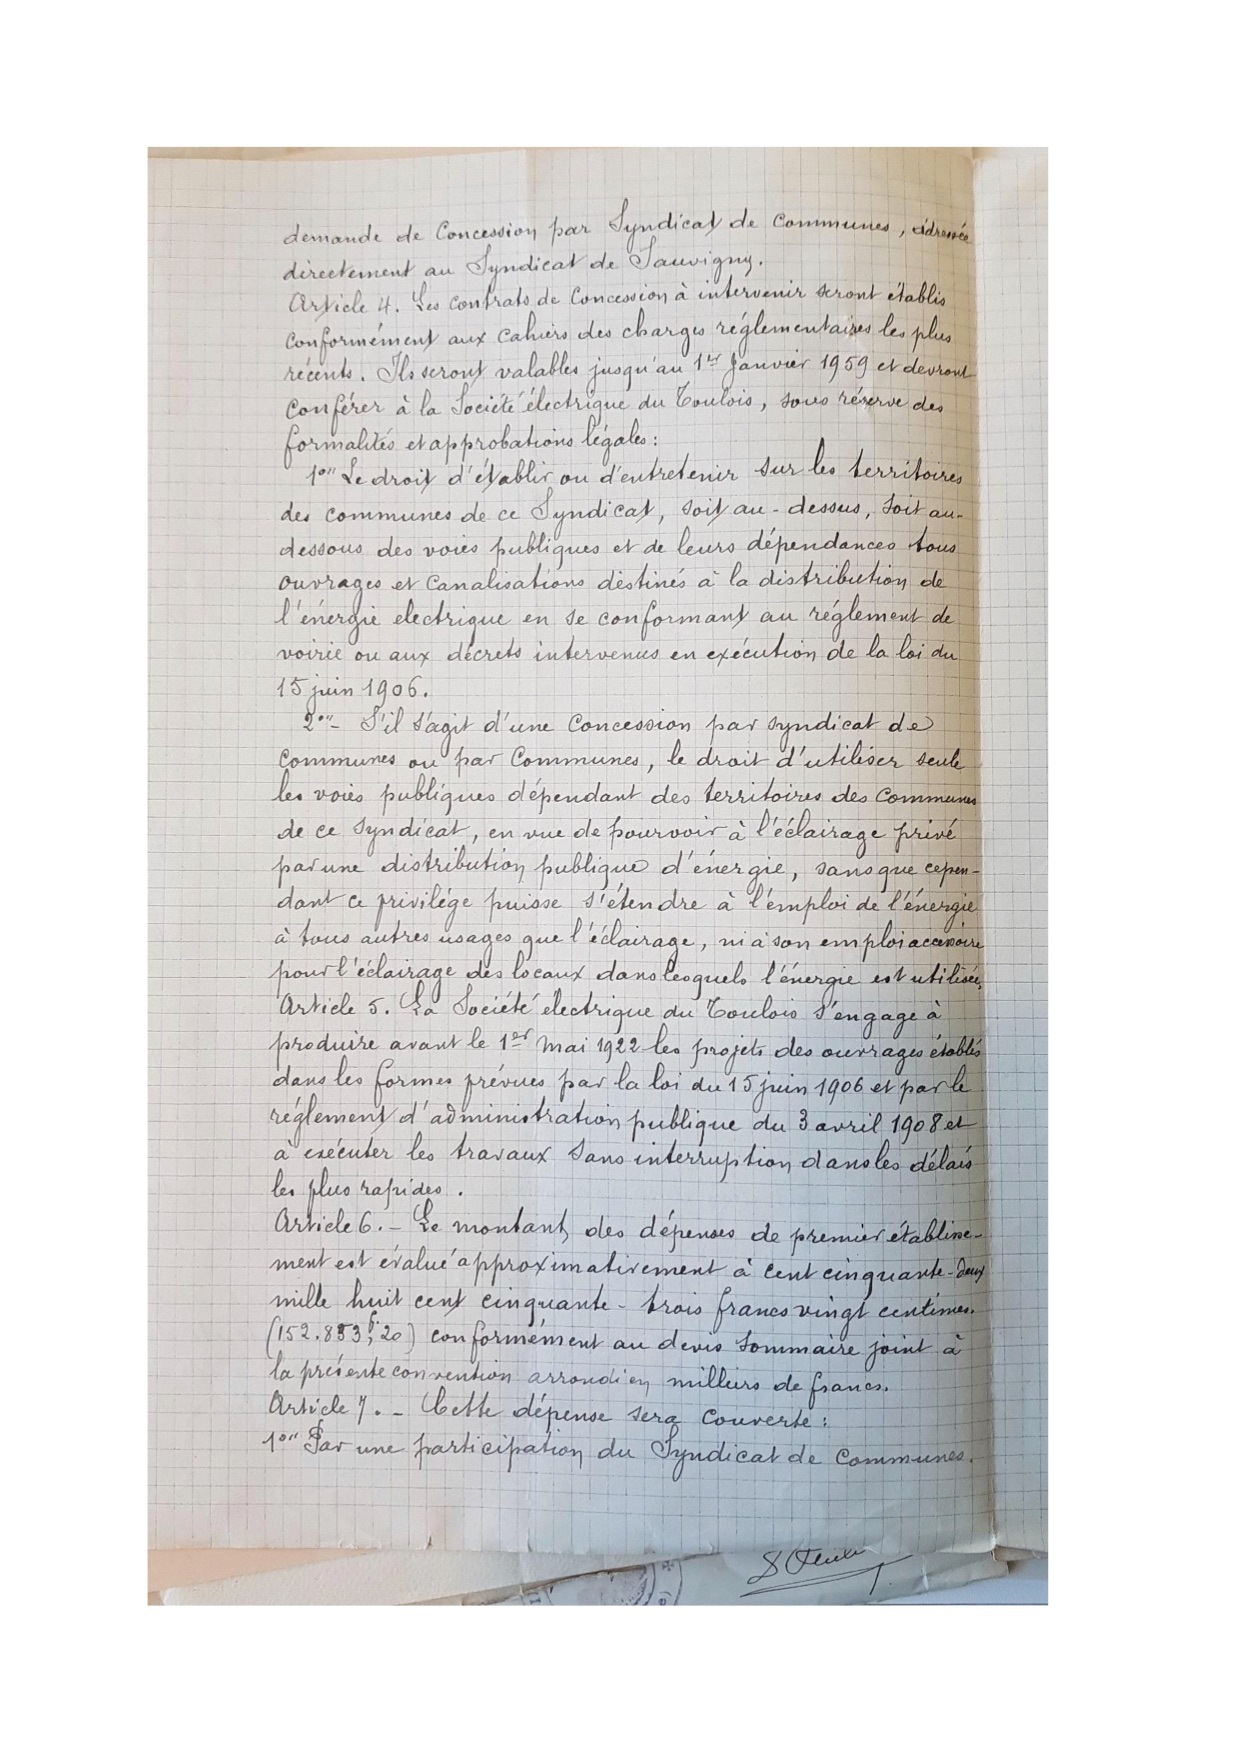 demande de Concession par Syndicat de Communes, adressée
directement au Syndicat de Sauvigny.
Article 4. Les Contrats de Concession à intervenir seront établis
conformément aux Cahiers des charges réglementaires les plus
récents. Ils seront valables jusqu'au 1er Janvier 1959 et devront
conférer à la Société électrique du Toulois, sous réserve des
formalités et approbations légales :
1o" Le droit d'établir ou d'entretenir sur les territoires
des communes de ce Syndicat, soit au-dessus, soit au-
dessous des voies publiques et de leurs dépendances tous
ouvrages et Canalisations destinés à la distribution de
l'énergie electrique en se conformant au réglement de
voirie ou aux décrets intervenus en exécution de la loi du
15 juin 1906.
2o"- S'il s'agit d'une Concession par syndicat de
Communes ou par Communes, le droit d'utiliser seule
les voies publiques dépendant des territoires des Communes
de ce Syndicat, en vue de pourvoir à l'éclairage privé
par une distribution publique d'énergie, sans que cepen-
dant ce privilége puisse s'étendre à l'emploi de l'énergie
à tous autres usages que l'éclairage, ni à son emploi accessoire
pour l'éclairage des locaux dans lesquels l'énergie est utilisée.
Article 5. La Société électrique du Toulois s'engage à
produire avant le 1er Mai 1922 les projets des ouvrages établis
dans les formes prévues par la loi du 15 juin 1906 et par le
réglement d'administration publique du 3 avril 1908 et
à exécuter les travaux sans interruption dans les délais
les plus rapides.
Article 6. - Le montant des dépenses de premier établisse-
ment est évalué approximativement à cent cinquante-deux
mille huit cent cinquante-trois francs vingt centimes.
(152.853f,20) conformément au devis sommaire joint à
la présente convention arrondi en milliers de francs.
Article 7. - Cette dépense sera couverte :
1o" Par une participation du Syndicat de Communes.